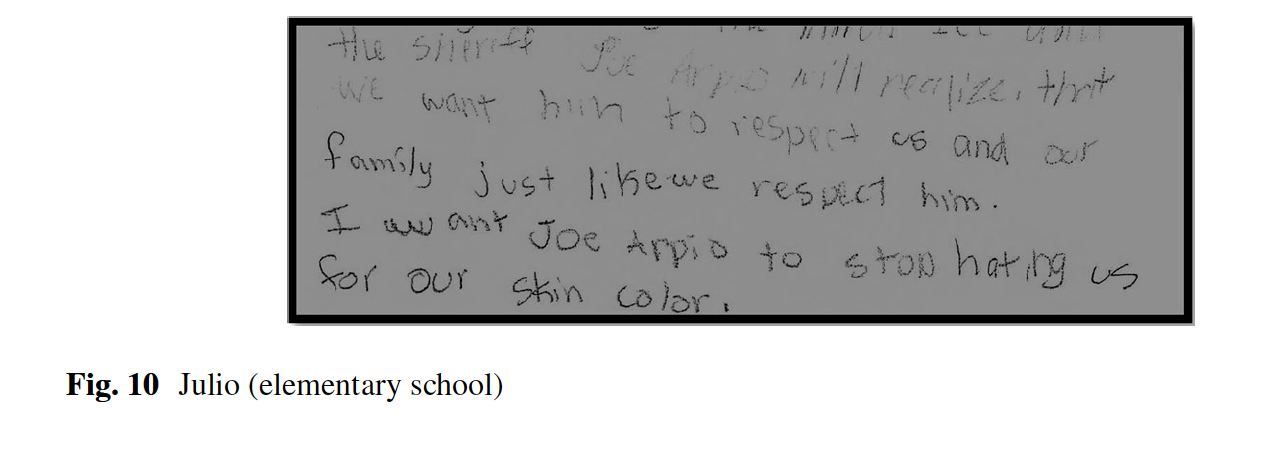 the sheriff Joe Arpio will realize, that
we want him to respect us and our
family just like we respect him.
I want Joe Arpio to stop hating us
for our skin color.
Fig. 10 Julio (elementary school)